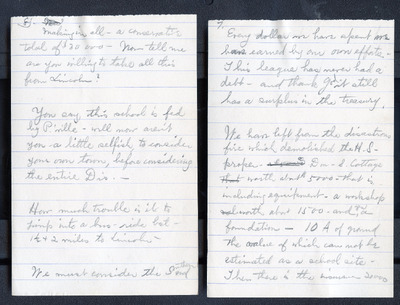 8-
Making in all - a conservative
total of $30000 - Now tell me
are you willing to take all this
from Lincoln?
You say, this school is fed
by P'ville - will now aren't
you a little selfish to consider
your own town, before considering
the entire Dis. -
How much trouble is it to
jump into a bus - ride but
1½ + 2 miles to Lincoln -
We must consider the
7.
Every dollar we have spent we
have earned by our own efforts.
This league has never had a
debt - and thank God still
has a surplus in the treasury.
We have left from the disastrous
fire which demolished the H.S.
proper - Dom. S. Cottage
worth about 5000 - that is
including equipment - a workshop
worth about 1500 - and a
foundation - 10 A of ground
the value of which can not be
estimated as a school site -
Then there is the insurance 20000